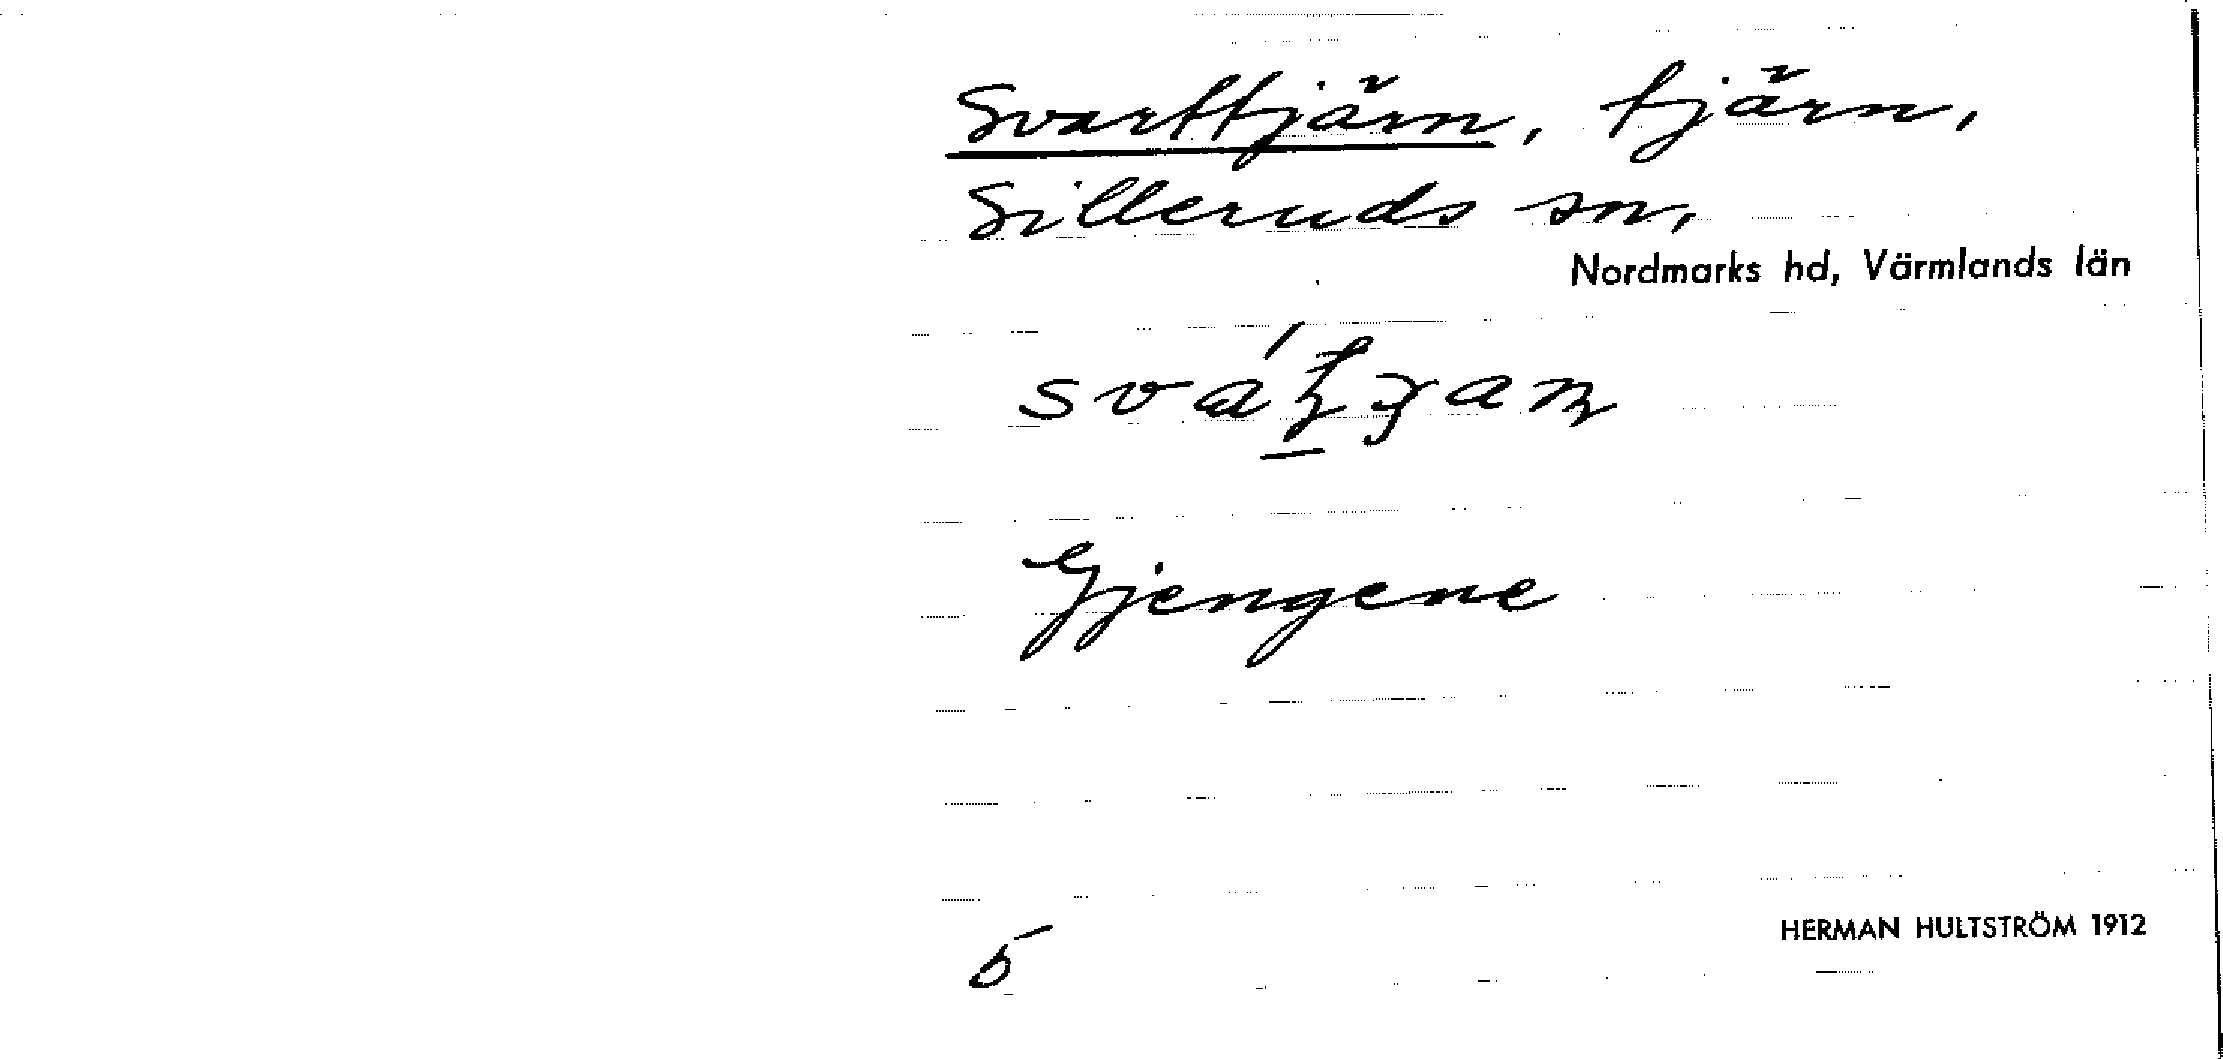 Svarttjärn, tjärn,
Silleruds sn,
Nordmarks hd, Värmlands län
Gjengene
5
HERMAN HULTSTRÖM 1912